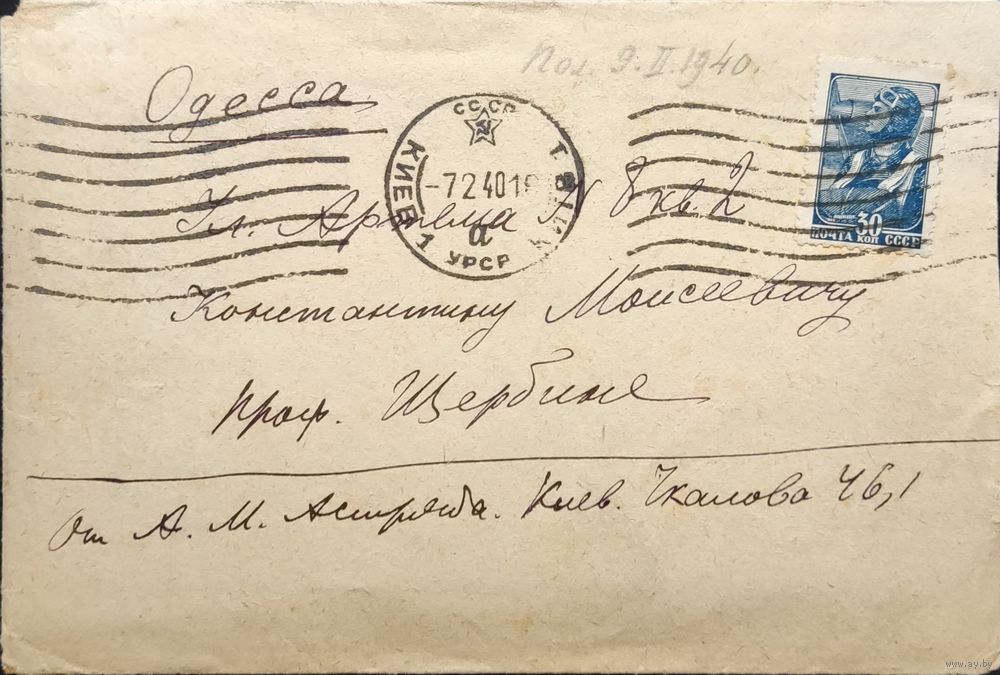 Пол. 9.II.1940.
Одесса
СССР
КИЕВ 1
-7.2.40 1
а
УРСР
30
ПОЧТА КОП СССР
Ул. Артема N 8 кв. 2
Константину Моисеевичу
проф. Щербине
От А. М. Астряба. Киев. Чкалова 46, 1
www.ay.by